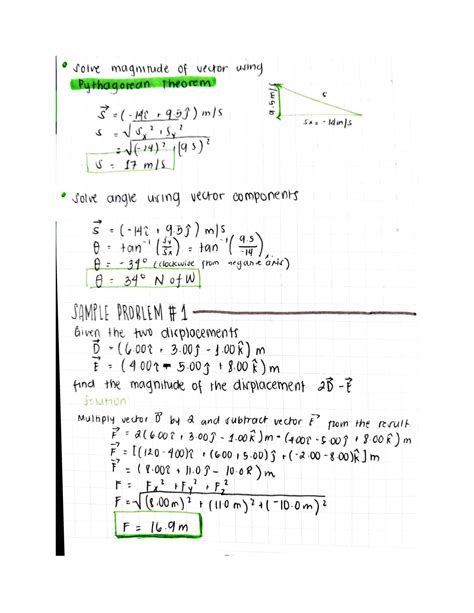 • Solve magnitude of vector using
Pythagorean Theorem
S⃗ = (-14î + 9.5ĵ) m/s
S = √Sx² + Sy²
= √(-14)² (9.5)²
S = 17 m/s
9.5 m/s
S
Sx = -14m/s
• Solve angle using vector components
S⃗ = (-14î + 9.5ĵ) m/s
θ = tan⁻¹ (Sy/Sx) = tan⁻¹ (9.5/-14)
θ = -34° (clockwise from negative axis)
θ = 34° N of W
SAMPLE PROBLEM #1
Given the two displacements
D⃗ = (6.00î + 3.00ĵ - 1.00k̂) m
E⃗ = (4.00î - 5.00ĵ + 8.00k̂) m
find the magnitude of the displacement 2D⃗ - E⃗
Solution:
Multiply vector D⃗ by 2 and subtract vector E⃗ from the result
F⃗ = 2(6.00î + 3.00ĵ - 1.00k̂) m - (4.00î - 5.00ĵ + 8.00k̂) m
F⃗ = [(12.0 - 4.00)î + (6.00 + 5.00)ĵ + (-2.00 - 8.00)k̂] m
F⃗ = (8.00î + 11.0ĵ - 10.0k̂) m
F = Fx² + Fy² + Fz²
F = √(8.00m)² + (11.0m)² + (-10.0m)²
F = 16.9m